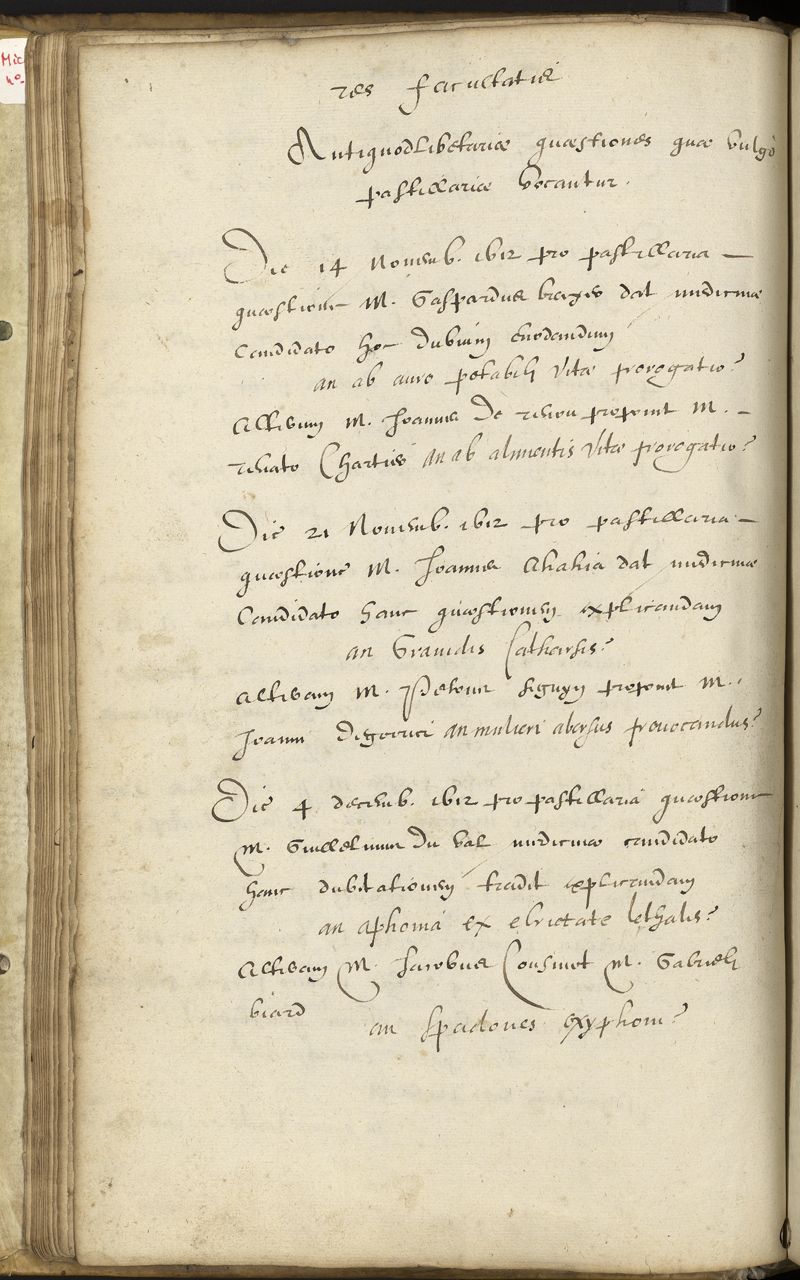 Mic
no.
res facultatis
Antiquodlibetariæ quæstiones quæ vulgò
pastillariæ vocantur.
Die 14 Novemb. 1612 pro pastillaria —
quæstione M. Gaspardus dat medicinæ
Candidato hoc dubium enodandum
an ab auro potabili vitæ prorogatio?
Alterum M. Joannes De proponit M. —
renato Chartier an ab alimentis vitæ prorogatio?
Die 21 Novemb. 1612 pro pastillaria —
quæstione M. Joannes Akakia dat medicinæ
Candidato hanc quæstionem explicandam
an Gravidis Catharsis?
alteram M. Petrus Seguyn proponit M.
Joanni an mulieri abortus provocandus?
Die 4 decemb. 1612 pro pastillariâ quæstione
M. Guillelmus Du Val medicinæ candidato
hanc dubitationem tradit explicandam
an aphonia ex ebrietate lethalis?
Alteram M. Jacobus Cousinot M. Gabrieli
biard an spadones oxyphoni?